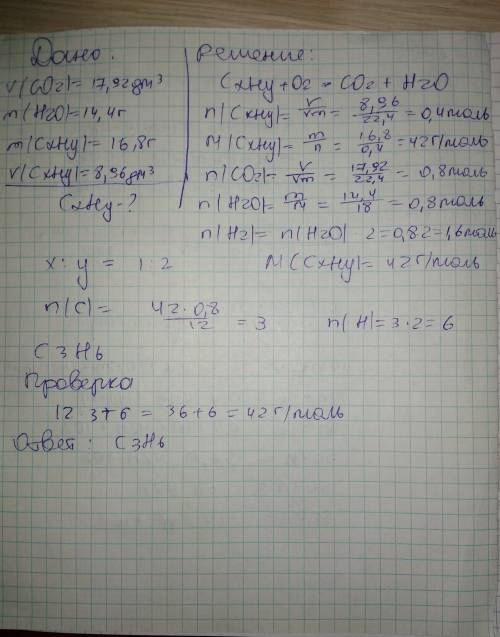 Дано:
V(CO2)=17,92дм³
m(H2O)=14,4г
m(CxHy)=16,8г
V(CxHy)=8,96дм³
CxHy-?
Решение:
CxHy+O2=CO2+H2O
n(CxHy)= V/Vm = 8,96/22,4 =0,4моль
M(CxHy)= m/n = 16,8/0,4 =42г/моль
n(CO2)= V/Vm = 17,92/22,4 = 0,8моль
n(H2O)= m/M = 14,4/18 =0,8моль
n(H2)= n(H2O)·2=0,8·2=1,6моль
x:y = 1:2
M(CxHy)= 42г/моль
n(C)= 42·0,8/12 = 3
n(H)=3·2=6
C3H6
Проверка
12 3+6 = 36+6=42г/моль
Ответ: C3H6